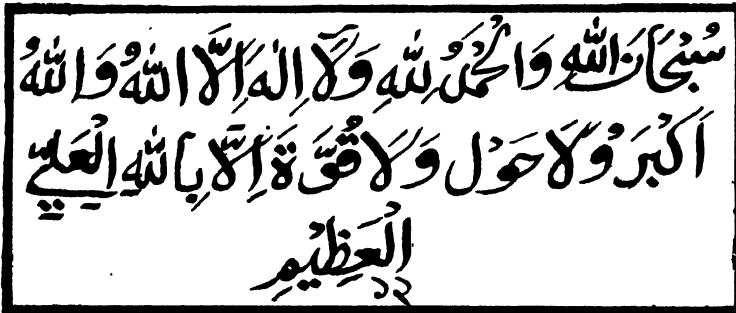 سُبْحَانَ اللّٰهِ وَالْحَمْدُ لِلّٰهِ وَلَآ اِلٰهَ اِلَّا اللّٰهُ وَاللّٰهُ
اَكْبَرَ وَلَا حَوْلَ وَلَا قُوَّةَ اِلَّا بِاللّٰهِ الْعَلِيِّ
الْعَظِيْمِ
۱۲